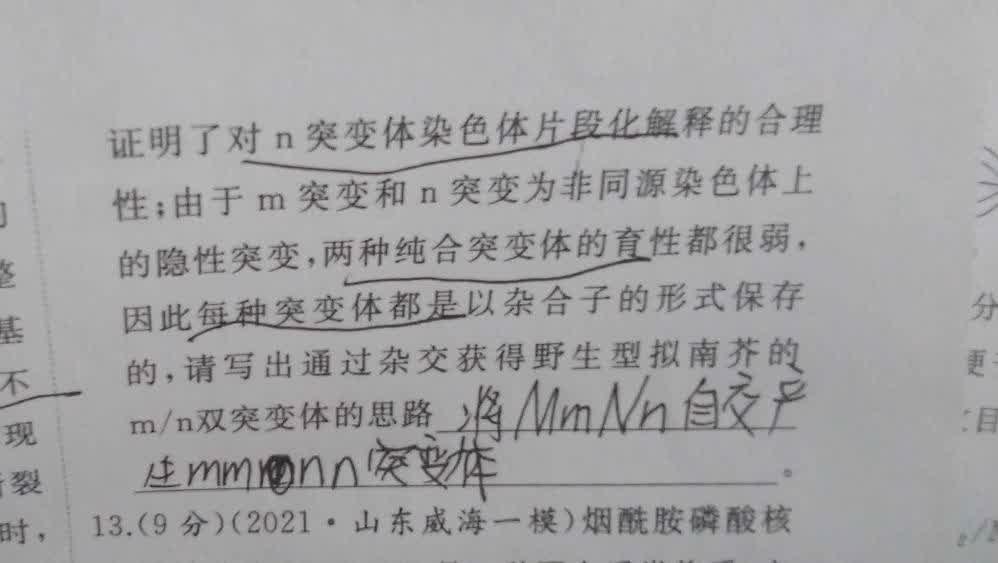 证明了对 n 突变体染色体片段化解释的合理
性;由于 m 突变和 n 突变为非同源染色体上
的隐性突变,两种纯合突变体的育性都很弱,
因此每种突变体都是以杂合子的形式保存
的,请写出通过杂交获得野生型拟南芥的
m/n双突变体的思路 将MmNn自交产
生mmnn突变体。
13.(9 分)(2021·山东威海一模)烟酰胺磷酸核
整
基
不
现
裂
时,
分
目